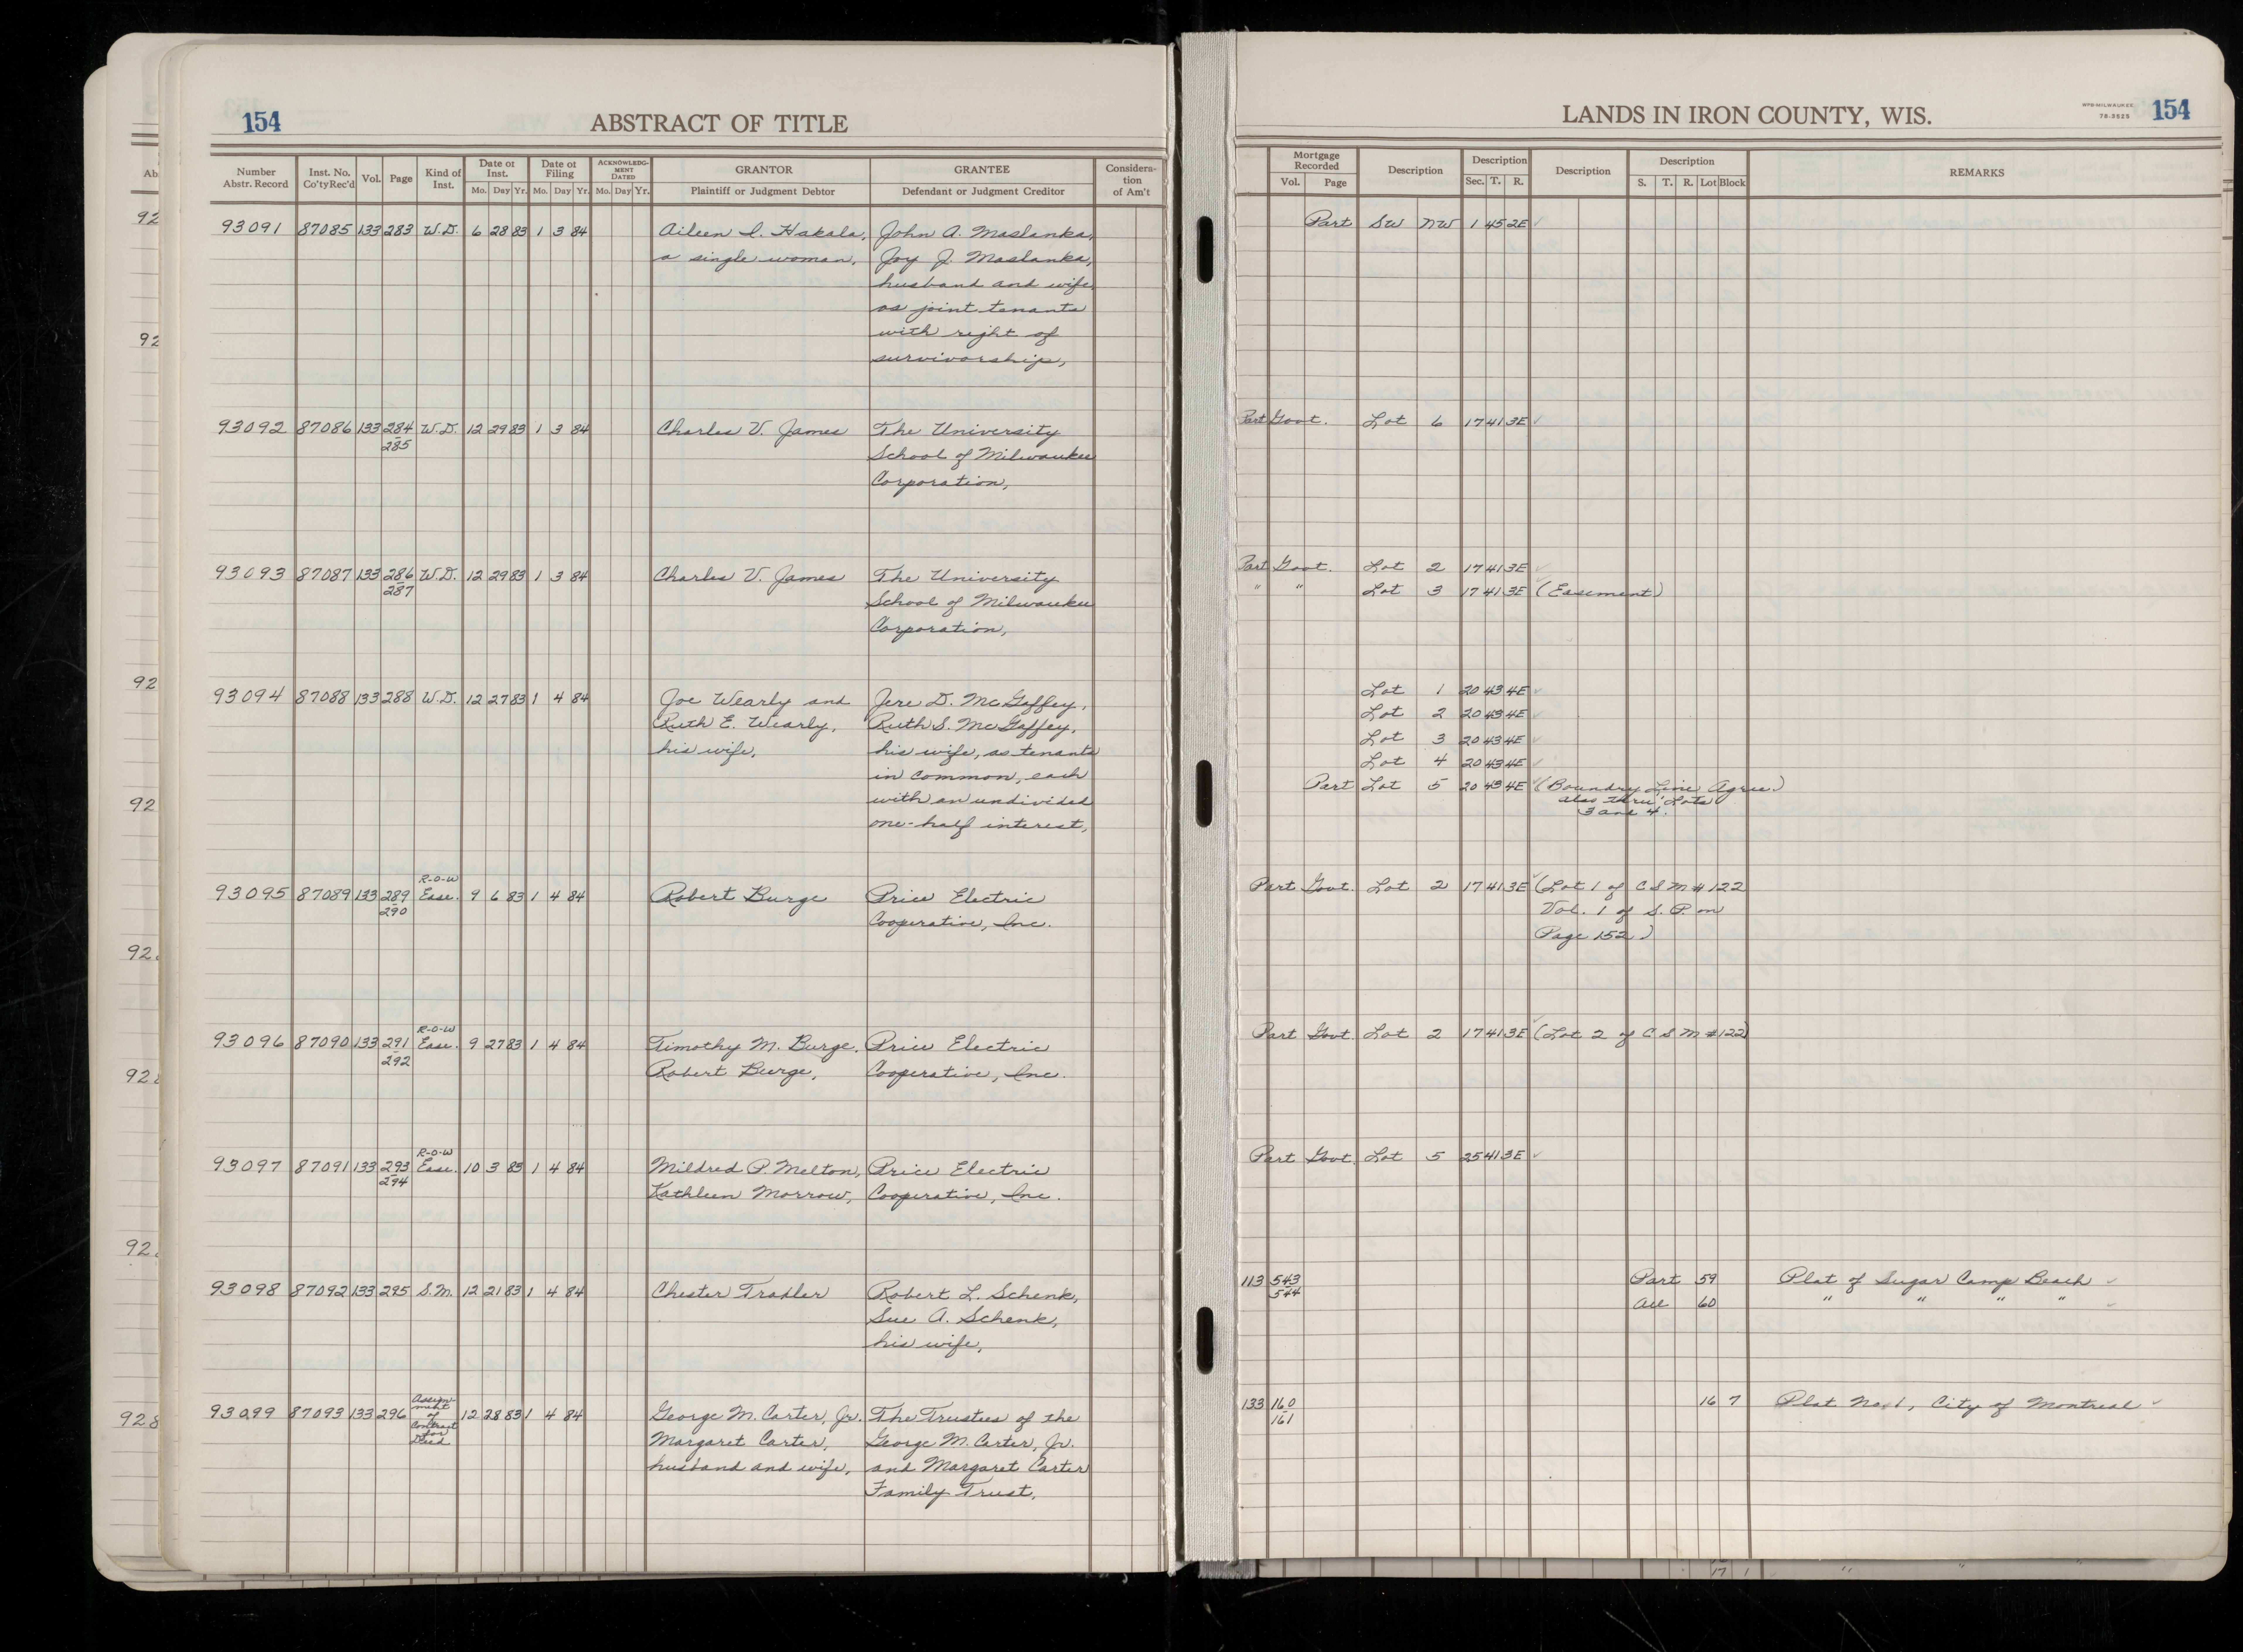 154 ABSTRACT OF TITLE
Number Abstr. Record | Inst. No. Co'ty Rec'd | Vol. | Page | Kind of Inst. | Date of Inst. Mo. Day Yr. | Date of Filing Mo. Day Yr. | ACKNOWLEDGMENT DATED Mo. Day Yr. | GRANTOR Plaintiff or Judgment Debtor | GRANTEE Defendant or Judgment Creditor | Consideration of Am't
93091 87085 133 283 W.D. 6 28 83 1 3 84 Aileen I. Hakala, John A. Maslanka,
a single woman, Joy J. Maslanka,
husband and wife
as joint tenants
with right of
survivorship,
93092 87086 133 284-285 W.D. 12 29 83 1 3 84 Charles V. James The University
School of Milwaukee
Corporation,
93093 87087 133 286-287 W.D. 12 29 83 1 3 84 Charles V. James The University
School of Milwaukee
Corporation,
93094 87088 133 288 W.D. 12 27 83 1 4 84 Joe Wearly and Jere D. McGaffey,
Ruth E. Wearly, Ruth S. McGaffey,
his wife, his wife, as tenants
in common, each
with an undivided
one-half interest,
93095 87089 133 289-290 R-O-W Ease. 9 6 83 1 4 84 Robert Burge Price Electric
Cooperative, Inc.
93096 87090 133 291-292 R-O-W Ease. 9 27 83 1 4 84 Timothy M. Burge, Price Electric
Robert Burge, Cooperative, Inc.
93097 87091 133 293-294 R-O-W Ease. 10 3 83 1 4 84 Mildred P. Melton, Price Electric
Kathleen Morrow, Cooperative, Inc.
93098 87092 133 295 S.M. 12 21 83 1 4 84 Chester Tradler Robert L. Schenk,
Sue A. Schenk,
his wife,
93099 87093 133 296 Assignment of Contract for Deed 12 28 83 1 4 84 George M. Carter, Jr. The Trustees of the
Margaret Carter, George M. Carter, Jr.
husband and wife, and Margaret Carter
Family Trust,
LANDS IN IRON COUNTY, WIS. WPB-MILWAUKEE 78-3525 154
Mortgage Recorded Vol. Page | Description | Description Sec. T. R. | Description | Description S. T. R. Lot Block | REMARKS
Part SW NW 1 45 2E ✓
Part Govt. Lot 6 17 41 3E ✓
Part Govt. Lot 2 17 41 3E ✓
" " Lot 3 17 41 3E (Easement)
Lot 1 20 43 4E ✓
Lot 2 20 43 4E ✓
Lot 3 20 43 4E ✓
Lot 4 20 43 4E ✓
Part Lot 5 20 43 4E ✓ (Boundry Line Agree.)
also thru Lots
3 and 4.
Part Govt. Lot 2 17 41 3E ✓ (Lot 1 of C S M # 122
Vol. 1 of S. P. on
Page 152)
Part Govt. Lot 2 17 41 3E ✓ (Lot 2 of C S M # 122)
Part Govt. Lot 5 25 41 3E ✓
113 543-544 Part 59 Plat of Sugar Camp Beach ✓
All 60 " " " " ✓
133 160-161 16 7 Plat No. 1, City of Montreal ✓